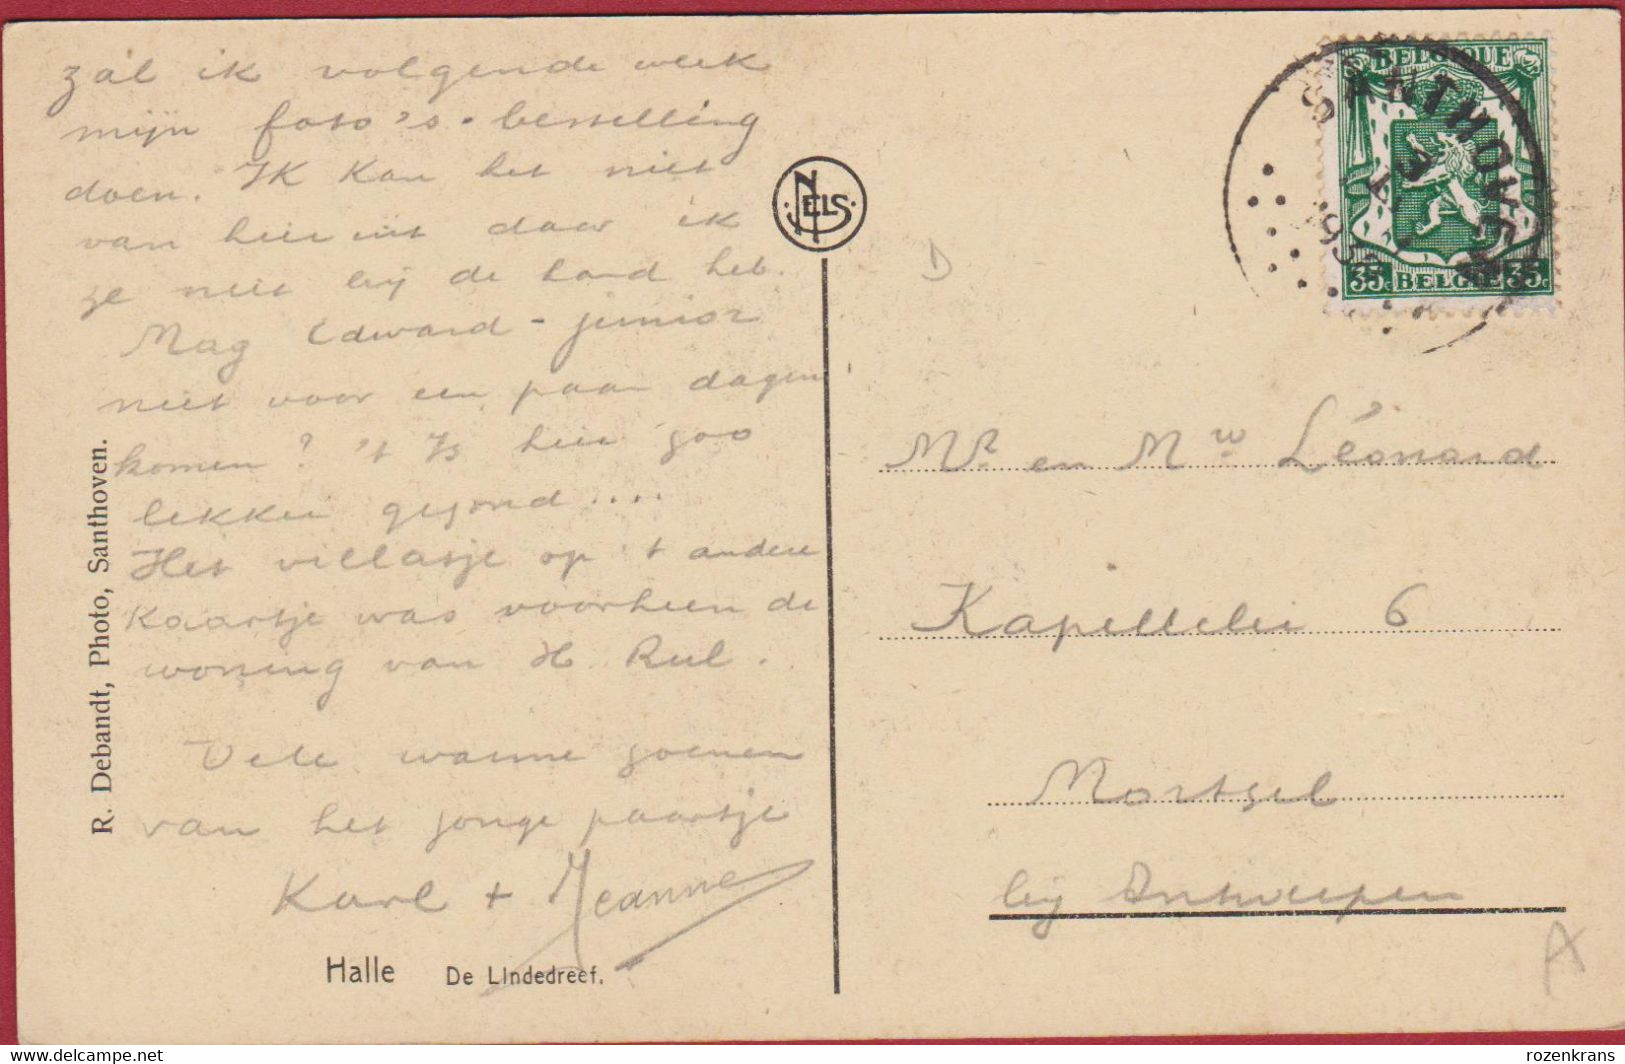 zal ik volgende week
mijn foto's-bestelling
doen. Ik kan het niet
van hier uit daar ik
ze niet bij de hand heb.
Mag Edward-junior
niet voor een paar dagen
komen? 't Is hier zoo
lekker gezond....
Het villatje op 't andere
kaartje was voorheen de
woning van H Rul.
Vele warme zoenen
van het jonge paartje
Karl + Jeanne
Halle De Lindedreef.
R. Debandt, Photo, Santhoven.
NELS
D
BELGIQUE
35c BELGIE 35c
SANTHOVEN
Mr en Mw Léonard
Kapellelei 6
Mortsel
bij Antwerpen
A
https://www.delcampe.net
rozenkrans